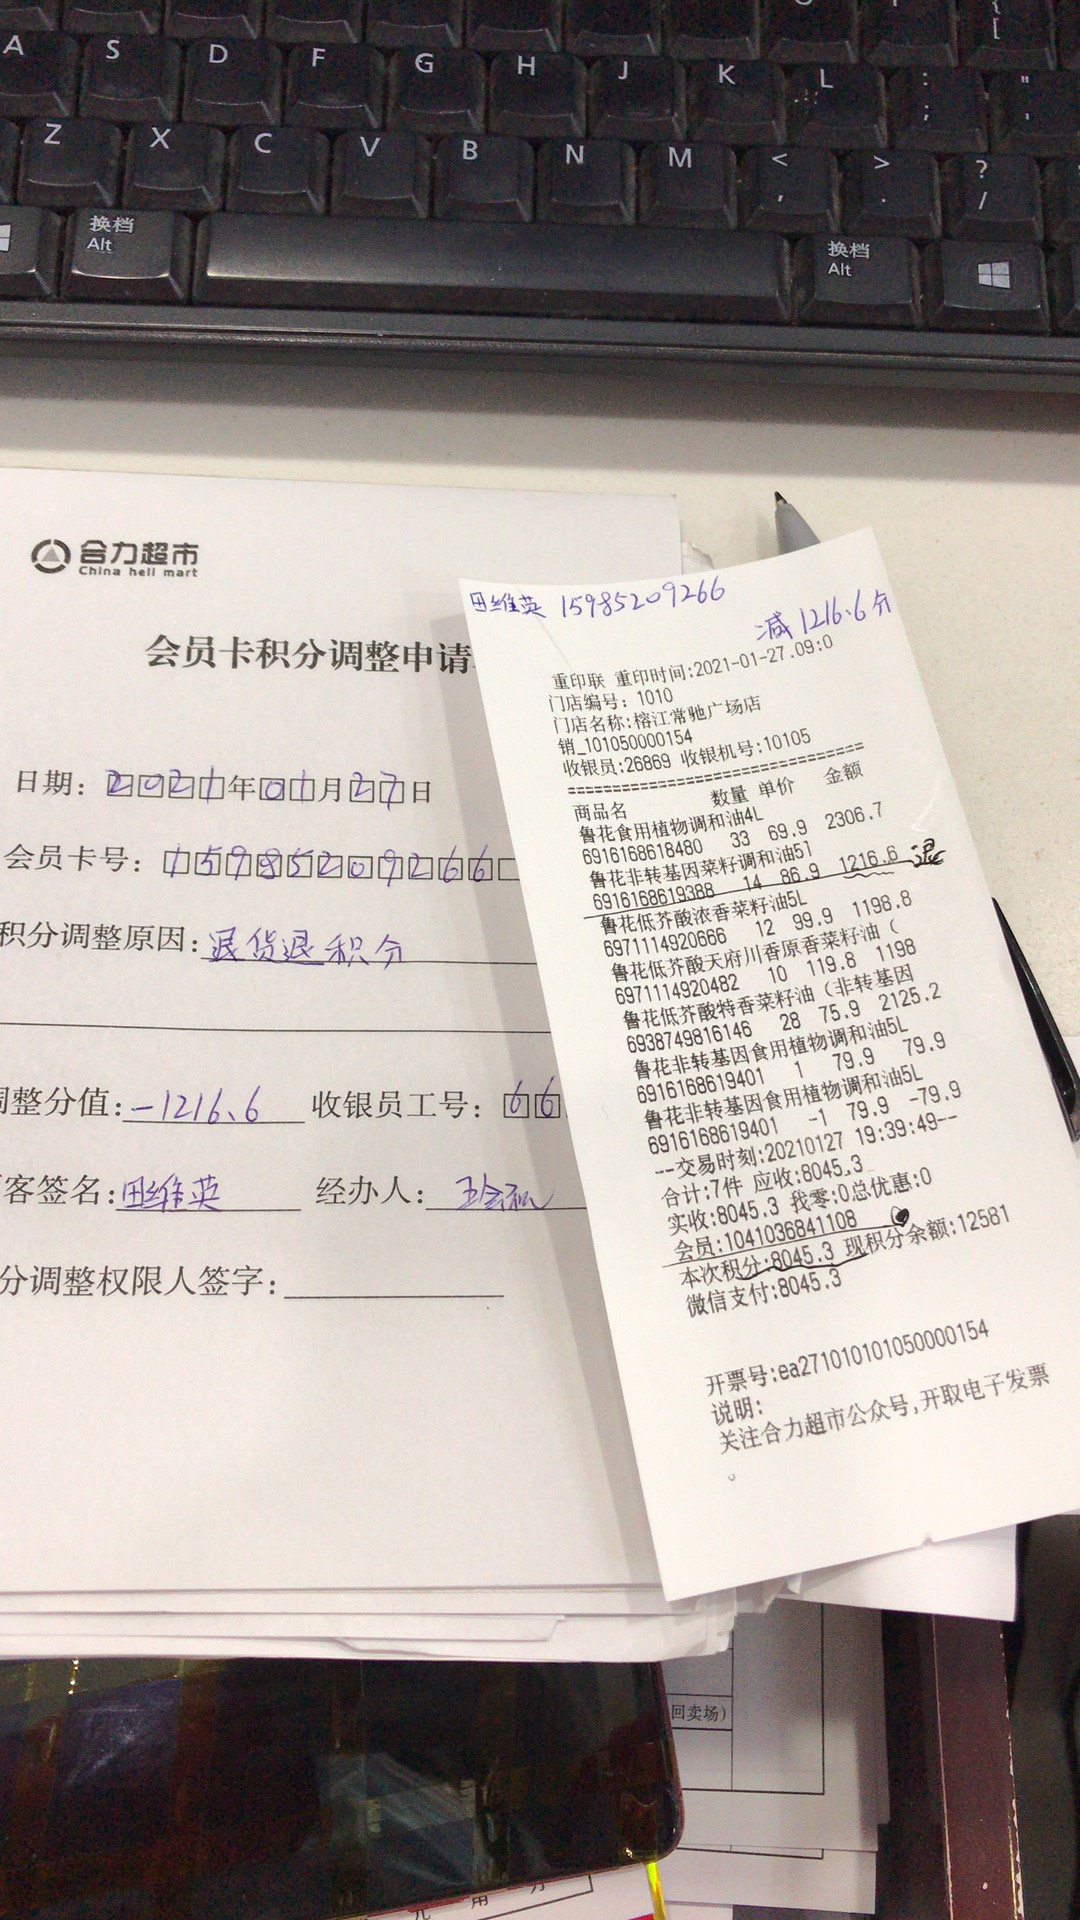 A S D F G H J K L : ; " '
Z X C V B N M < , > . ? /
换档 Alt 换档 Alt
合力超市
China heli mart
会员卡积分调整申请
日期：2021年01月27日
会员卡号：15985209266
积分调整原因：退货退积分
调整分值：-1216.6 收银员工号：66
客签名：田维英 经办人：
分调整权限人签字：
田维英 15985209266
减1216.6分
重印联 重印时间:2021-01-27.09:0
门店编号: 1010
门店名称:榕江常驰广场店
销_101050000154
收银员:26869 收银机号:10105
商品名 数量 单价 金额
鲁花食用植物调和油4L
6916168618480 33 69.9 2306.7
鲁花非转基因菜籽调和油5l
6916168619388 14 86.9 1216.6 退
鲁花低芥酸浓香菜籽油5L
6971114920666 12 99.9 1198.8
鲁花低芥酸天府川香原香菜籽油（
6971114920482 10 119.8 1198
鲁花低芥酸特香菜籽油（非转基因
6938749816146 28 75.9 2125.2
鲁花非转基因食用植物调和油5L
6916168619401 1 79.9 79.9
鲁花非转基因食用植物调和油5L
6916168619401 -1 79.9 -79.9
---交易时刻:20210127 19:39:49--
合计:7件 应收:8045.3
实收:8045.3 我零:0总优惠:0
会员:1041036841108
本次积分:8045.3 现积分余额:12581
微信支付:8045.3
开票号:ea271010101050000154
说明:
关注合力超市公众号,开取电子发票
。
回卖场）